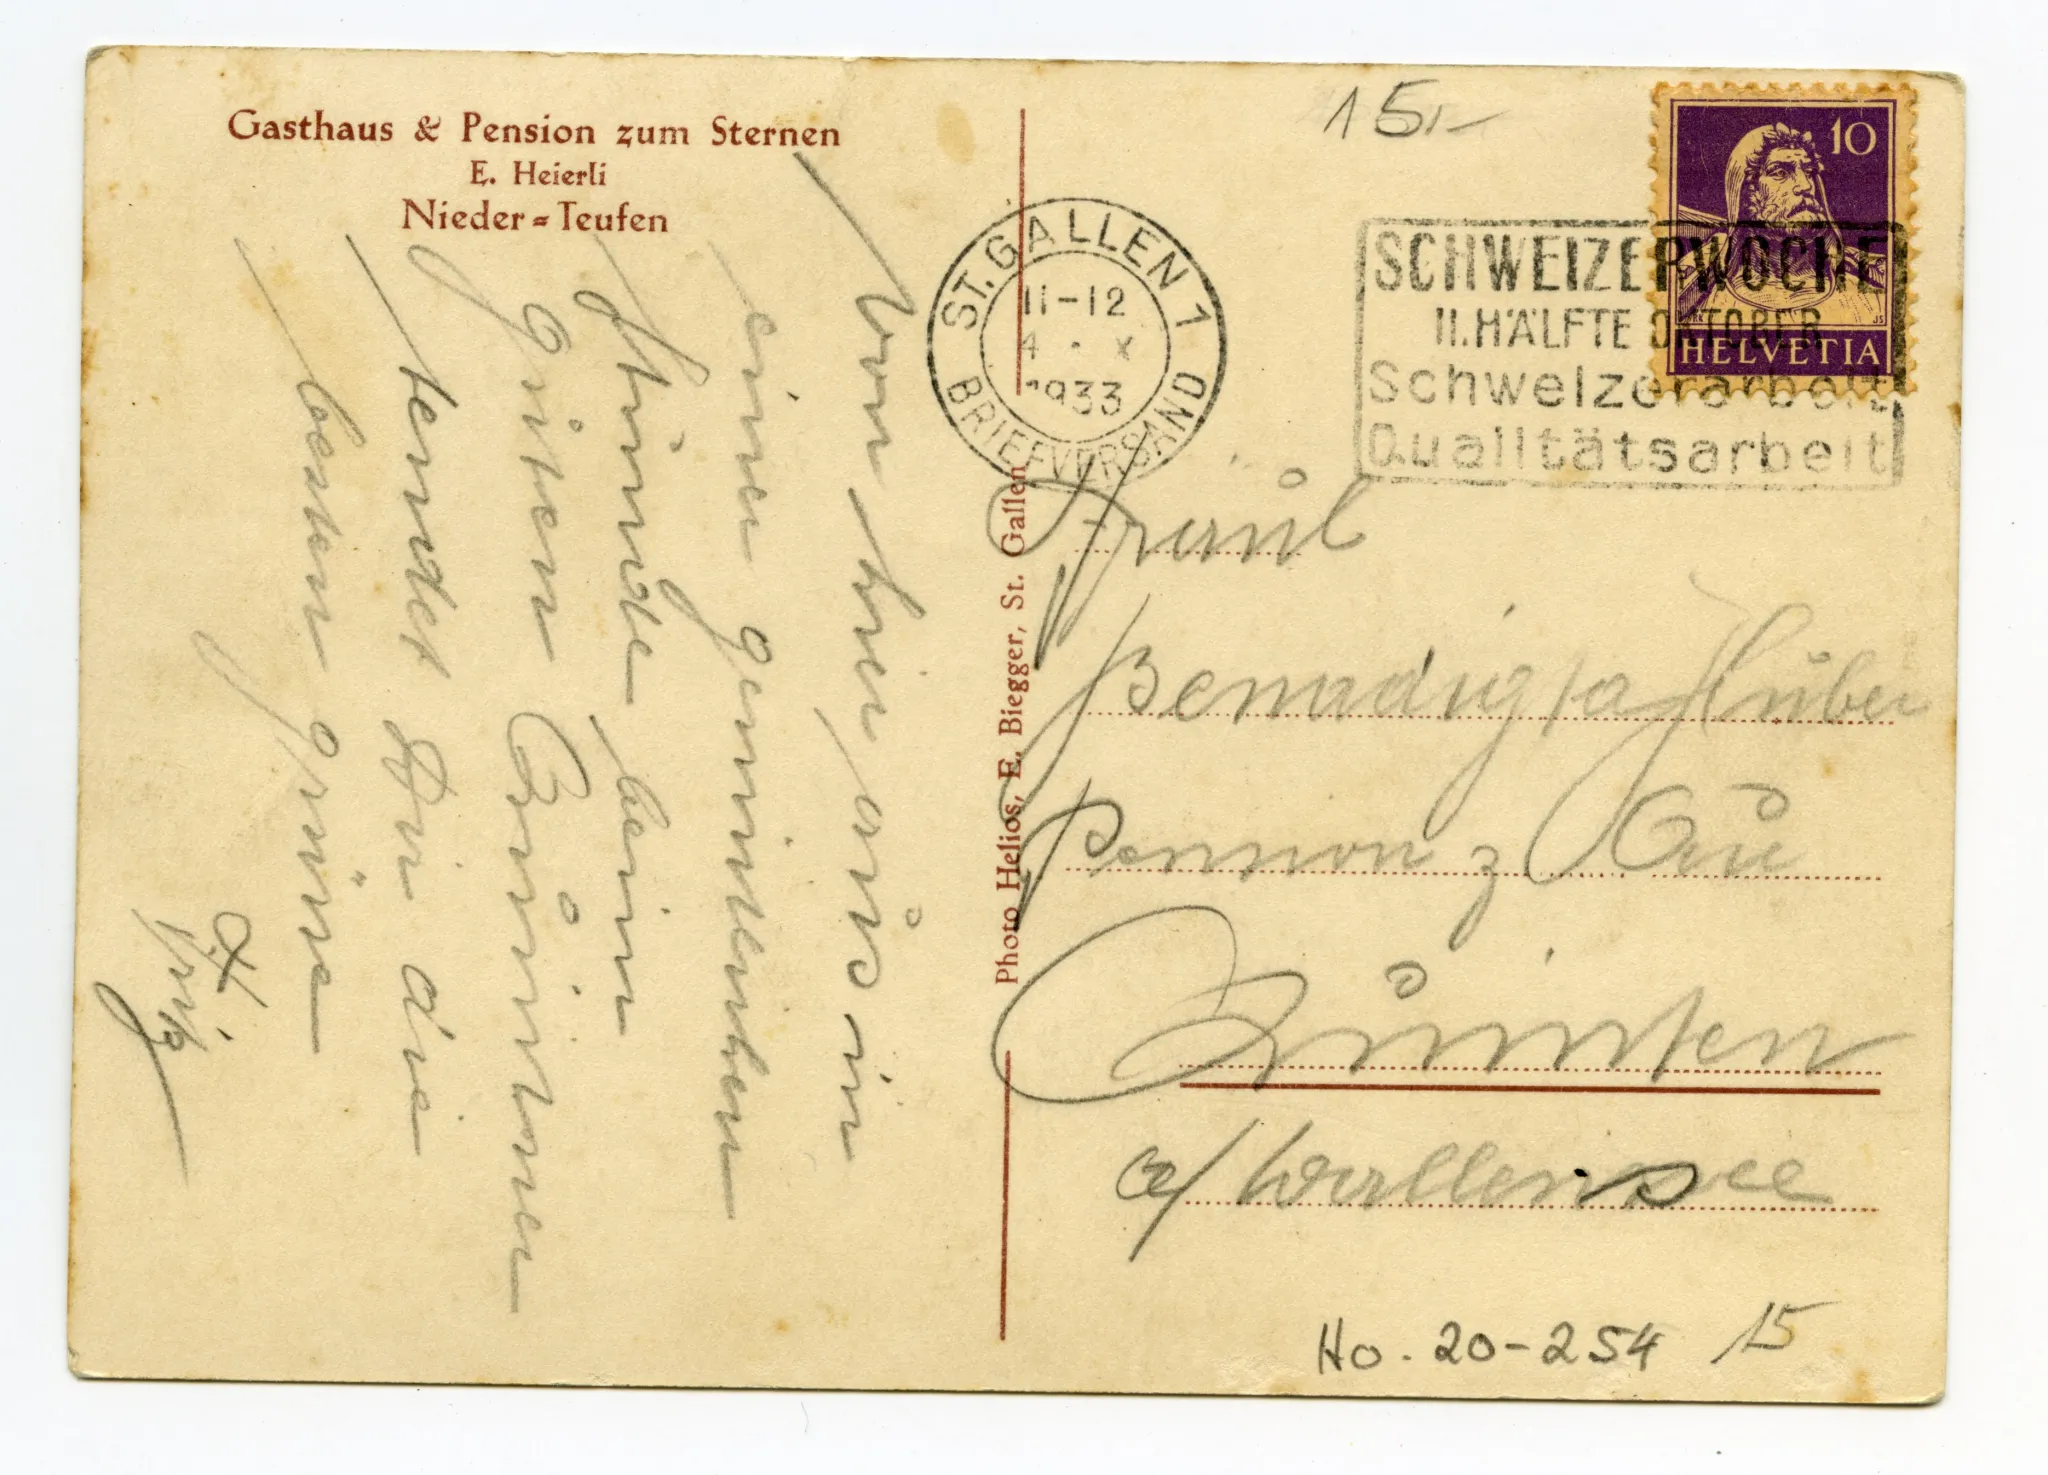 Gasthaus & Pension zum Sternen
E. Heierli
Nieder=Teufen
Von hier aus in
einer gemütlichen
Stunde beim
guten
sendet Dir die
besten Grüsse
Photo Helios, E. Biegger, St. Gallen
15.-
10
HELVETIA
ST. GALLEN 1
11-12
4 · X
1933
BRIEFVERSAND
SCHWEIZERWOCHE
II. HÄLFTE OKTOBER
Schweizerarbeit
Qualitätsarbeit
Fraul
Huber
Pension z Au
a/ Wallensee
Ho. 20-254
15